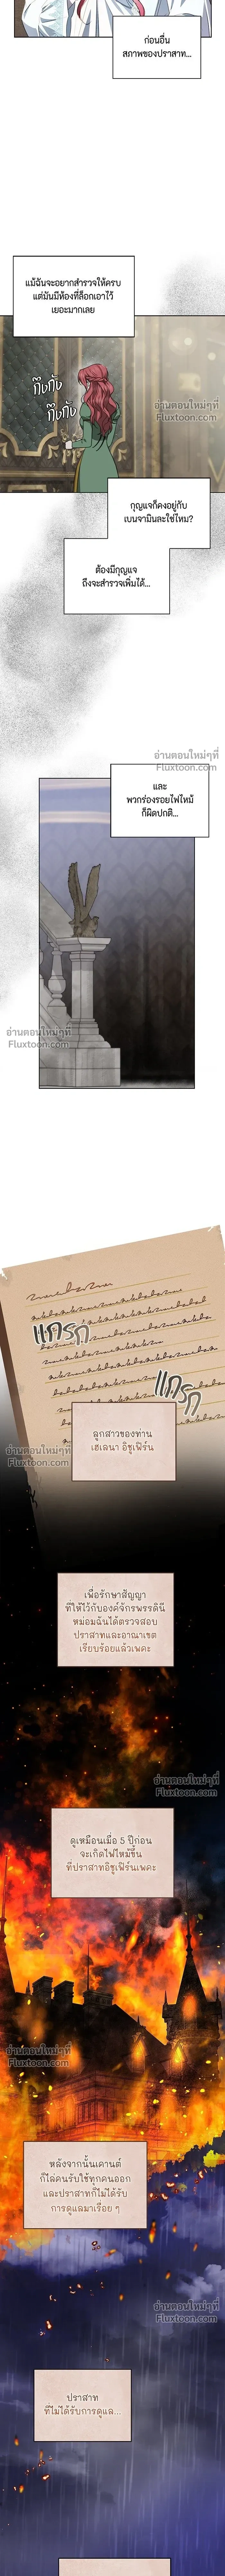 ก่อนอื่น
สภาพของปราสาท...
แม้ฉันจะอยากสำรวจให้ครบ
แต่มันมีห้องที่ล็อกเอาไว้
เยอะมากเลย
กึงกัง
กึงกัง
อ่านตอนใหม่ๆที่
Fluxtoon.com
กุญแจก็คงอยู่กับ
เบนจามินละใช่ไหม?
ต้องมีกุญแจ
ถึงจะสำรวจเพิ่มได้...
อ่านตอนใหม่ๆที่
Fluxtoon.com
และ
พวกร่องรอยไฟไหม้
ก็ผิดปกติ...
อ่านตอนใหม่ๆที่
Fluxtoon.com
แกรก
แกรก
ลูกสาวของท่าน
เฮเลนา อิชูเฟิร์น
อ่านตอนใหม่ๆที่
Fluxtoon.com
เพื่อรักษาสัญญา
ที่ให้ไว้กับองค์จักรพรรดินี
หม่อมฉันได้ตรวจสอบ
ปราสาทและอาณาเขต
เรียบร้อยแล้วเพคะ
อ่านตอนใหม่ๆที่
Fluxtoon.com
ดูเหมือนเมื่อ 5 ปีก่อน
จะเกิดไฟไหม้ขึ้น
ที่ปราสาทอิชูเฟิร์นเพคะ
อ่านตอนใหม่ๆที่
Fluxtoon.com
หลังจากนั้นเคานต์
ก็ไล่คนรับใช้ทุกคนออก
และปราสาทก็ไม่ได้รับ
การดูแลมาเรื่อย ๆ
อ่านตอนใหม่ๆที่
Fluxtoon.com
ปราสาท
ที่ไม่ได้รับการดูแล...